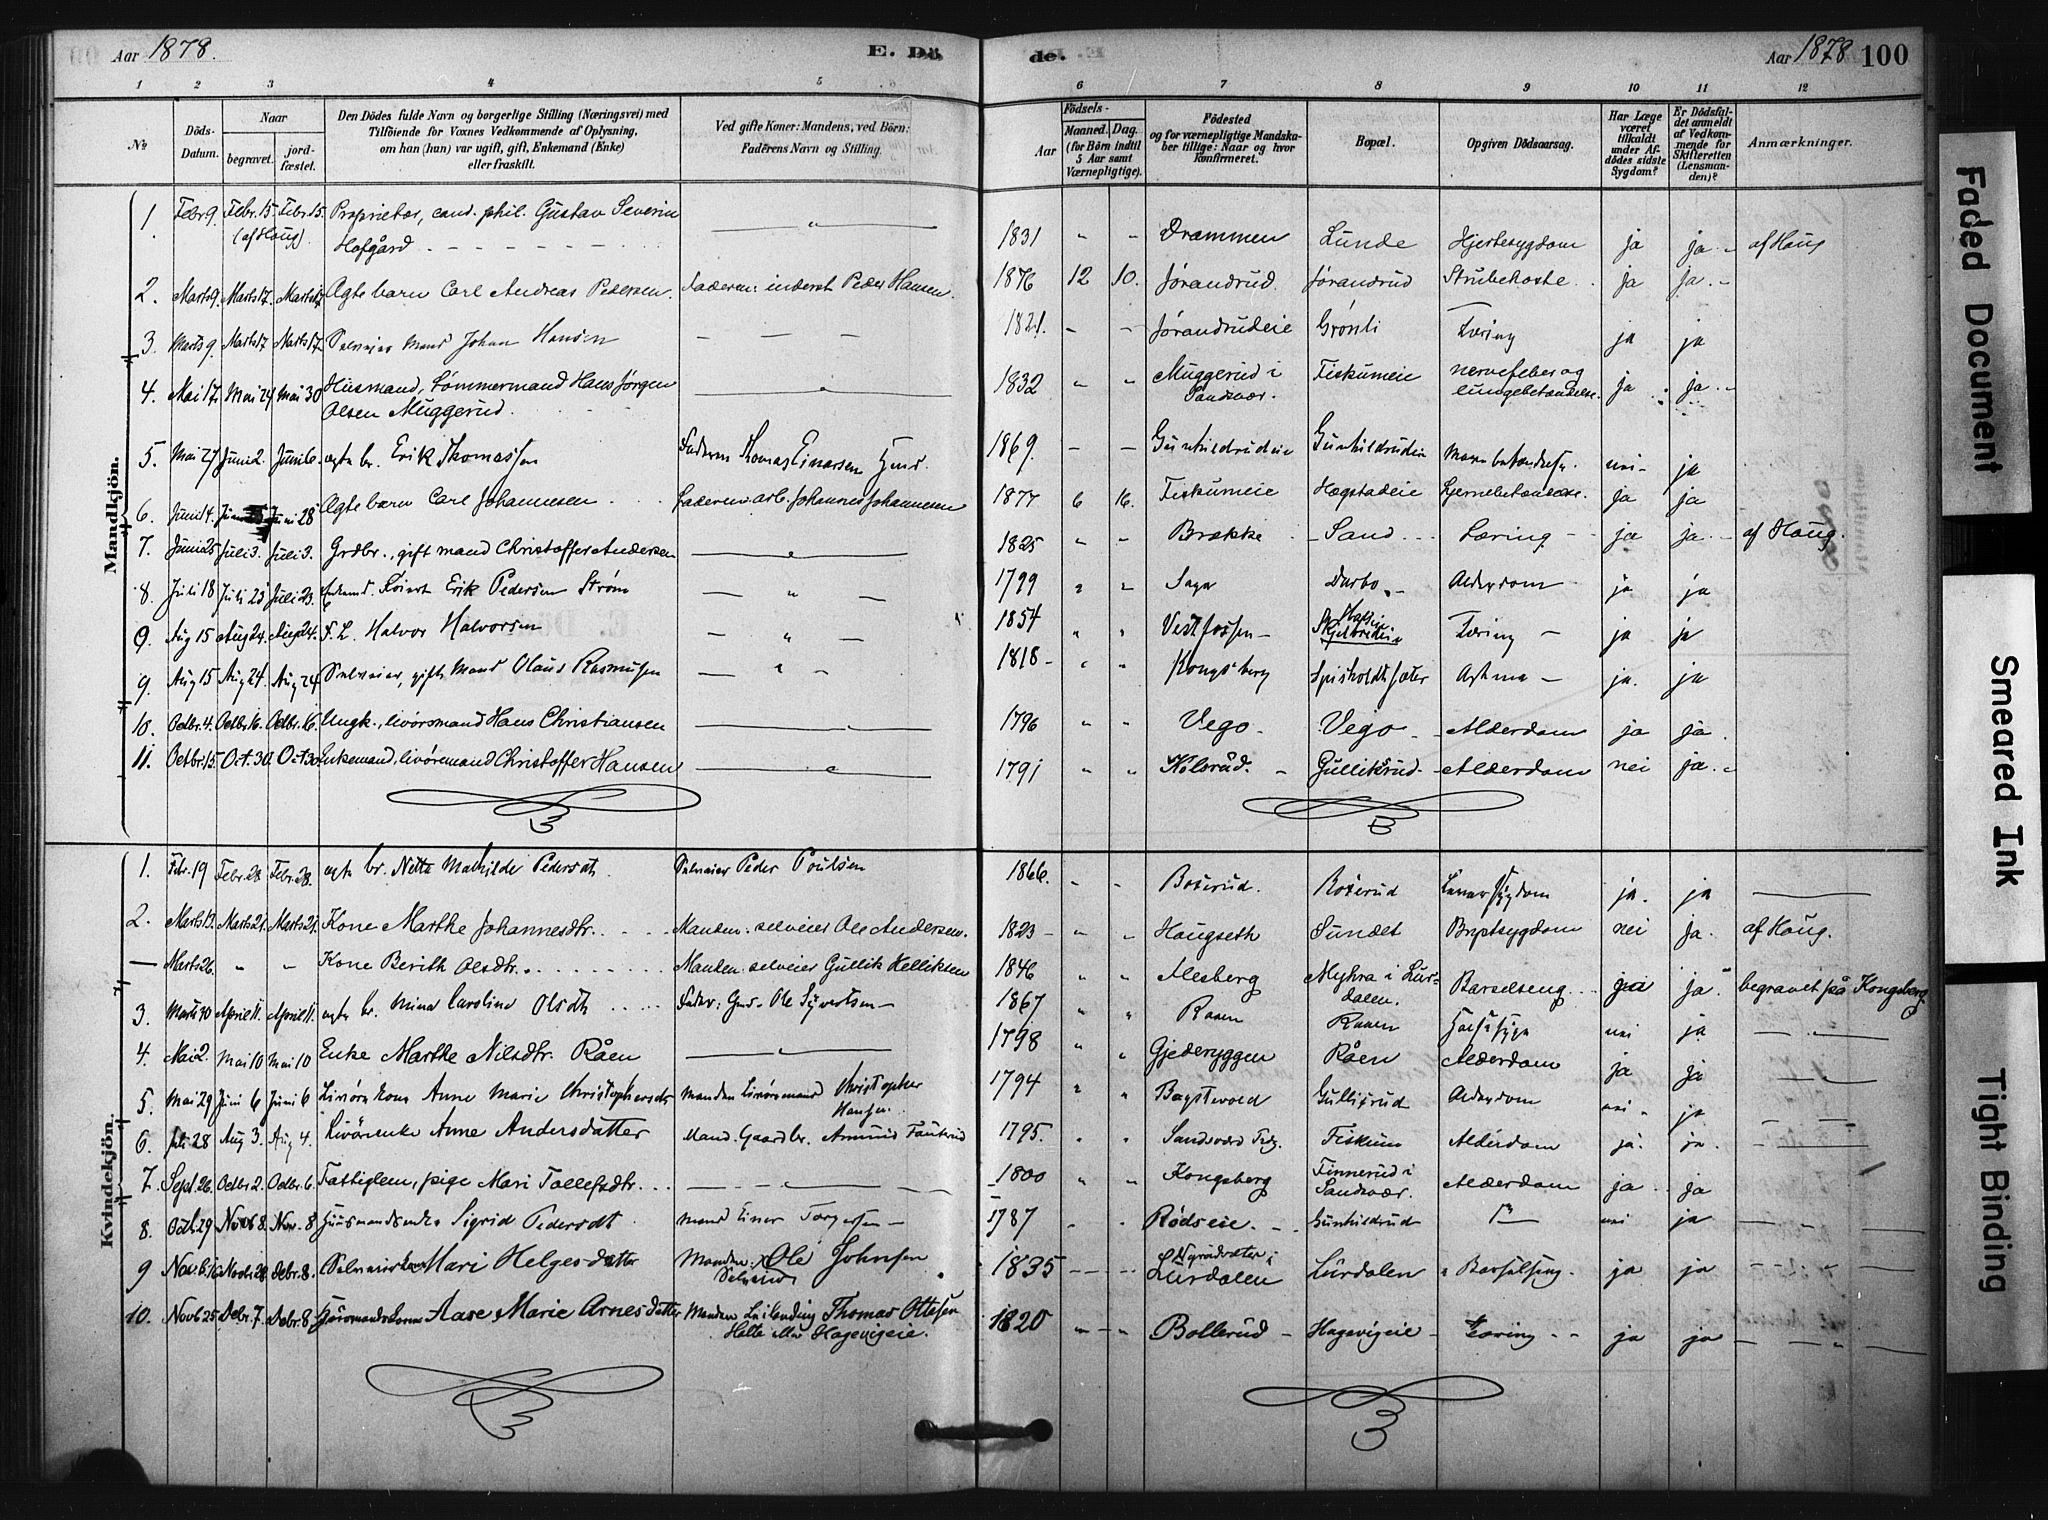 Aar 1878. E. Dö
de. Aar 1878 100
1 2 3 4 5 6 7 8 9 10 11 12
No
Döds-Datum.
Naar
begravet. jord-fæstet.
Den Dödes fulde Navn og borgerlige Stilling (Næringsvei) med
Tilföiende for Voxnes Vedkommende af Oplysning,
om han (hun) var ugift, gift, Enkemand (Enke)
eller fraskilt.
Ved gifte Koner: Mandens, ved Börn:
Faderens Navn og Stilling.
Aar
Födsels-
Maaned. Dag.
(for Börn indtil
5 Aar samt
Værnepligtige).
Födested
og for værnepligtige Mandska-
ber tillige: Naar og hvor
konfirmeret.
Bopæl.
Opgiven Dödsaarsag.
Har Læge
været
tilkaldt
under Af-
dödes sidste
Sygdom?
Er Dödsfal-
det anmeldt
af Vedkom-
mende for
Skifteretten
(Lensman-
den)?
Anmærkninger.
Mandkjön.
1. Febr 9. Febr. 15. Febr. 15. Proprietær, cand. phil. Gustav Severin " 1831 " " Drammen Lunde Hjertesygdom ja ja af Haug
(af Haug). Hofgård
2. Marts 9. Marts 17. Marts 17 Ægte barn Carl Andreas Pedersen. Faderen: inderst Peder Hansen. 1876 12 10. Jørandrud Jørandrud Strubehoste ja ja
3. Marts 9. Marts 17 Marts 17. Selveier Mand Johan Hansen 1821. Jørandrudeie Grønli Tæring ja ja
4. Mai 17. Mai 24 Mai 30 Husmand, Tømmermand Hans Jørgen 1832 " " Muggerud i Fiskumeie nervefeber og ja ja
Olsen Muggerud. Sandsvær. lungebetændelse.
5. Mai 27 Juni 2. Juni 6. ægte br. Erik Thomassen Faderen Thomas Einarsen 1869. Gunhildrudeie Gunhildrudeie nei ja
6. Juni 14. Juni 28 Ægte barn Carl Johannesen Faderen: arb. Johannes Johannesen 1877 6 16. Fiskumeie Hægstadeie Hjernebetændelse. ja ja
7. Juni 25 Juli 3. Juli 3. Grdbr., gift mand Christoffer Andersen 1825 " " Brække Sand Tæring ja ja af Haug.
8. Juli 18 Juli 23 Juli 23. Erik Pedersen Strøm 1799 " " Saga Darbo Alderdom ja ja
9. Aug 15 Aug 24. Aug 24. F. L. Halvor Halvorsen 1854 " " Vestfossen Tæring ja ja
9. Aug 15 Aug 24. Aug 24 Selveier, gift Mand Olaus Rasmussen 1818 " " Kongsberg Asthma ja. ja
10. Octbr. 4. Octbr. 16. Octbr. 16. Ungk., livørsmand Hans Christiansen 1796 " " Vego Vego Alderdom ja ja.
11. Octbr. 15. Oct. 30. Oct 30. Enkemand, livøremand Christoffer Hansen 1791 " " Kolsrud. Gulliksrud Alderdom nei ja.
Kvindekjön.
1. Febr. 19 Febr. 28 Febr. 28. ægte br. Nette Mathilde Pedersdt. Selveier Peder Poulsen 1866. " " Boserud. Boserud ja. ja
2. Marts 13. Marts 21. Marts 21. Kone Marthe Johannesdtr. Manden: selveier Ole Andersen. 1823 " " Haugseth Sundet Brystsygdom nei ja. af Haug.
— Marts 26. " " Kone Berith Olsdtr. Manden: selveier Gullik Kelliksen 1846 " " Alesberg Myhra i Lur-dalen. Barselseng ja. begravet på Kongsberg
3. Marts 30 April 11. April 11. ægte br. Mina Caroline Olsdt. Fader: Gmd. Ole Syvertsen 1867 " " Raaen Raaen nei ja
4. Mai 2. Mai 10 Mai 10 Enke Marthe Nilsdtr. Råen 1798 " " Gjederyggen Råen Alderdom ja ja
5. Mai 29 Juni 6 Juni 6 Livørskone Anne Marie Christophersdt. Manden Livøremand Christopher 1794 " " Alderdom nei ja
Hansen.
6. Juli 28 Aug 3. Aug 4. Livörenke Anne Andersdatter Mand. Gaardbr. Amund 1795. " " Fiskum Alderdom ja. ja.
7. Sept. 26. Octbr. 2. Octbr. 6. Fattiglem, pige Mari Tollefsdtr. 1800 " " Kongsberg Finnerud i Alderdom ja ja
Sandsvær.
8. Octb. 29 Novb 8. Nov. 8 Husmandsenke Sigrid Pedersdt. Mand Einar Torgersen 1787 Rødseie Gunhildrud nei ja
9 Novb. 28 Debr. 8. Selveierkone Mari Helgesdatter Manden: Ole Johnsen 1835 Nyrudsæter i Lurdalen Barselseng ja ja
Selveier Lurdalen
10. Novb 25 Debr. 7. Debr. 8. Aase Marie Arnesdatter Manden Leilending Thomas Ottesen 1820 Bollerud Hagevigeie Tæring ja ja
Helte eller Hagevigeie.
Faded Document
Smeared Ink
Tight Binding